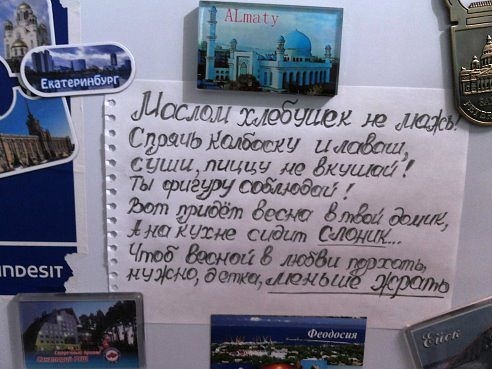 ALmaty
Екатеринбург
Маслом хлебушек не мажь!
Спрячь колбаску и лаваш,
Суши, пиццу не вкушай!
Ты фигуру соблюдай!
Вот придёт весна в твой домик,
А на кухне сидит слоник...
Чтоб весной в любви порхать,
нужно, детка, меньше жрать
INDESIT
Феодосия
Ейск